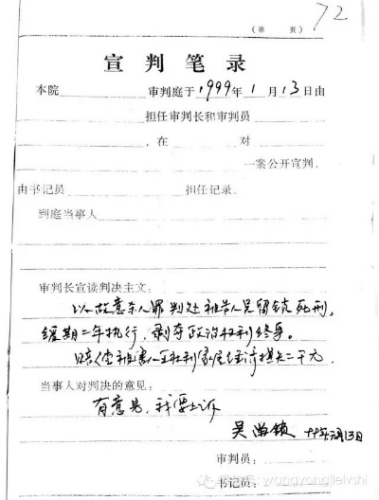 72
(第 页)
宣判笔录
本院 审判庭于1999年1月13日由
担任审判长和审判员
,在 对
一案公开宣判。
由书记员 担任记录。
到庭当事人
审判长宣读判决主文:
以故意杀人罪判处被告人吴留锁死刑,
缓期二年执行,剥夺政治权利终身。
赔偿被害人王胜利家属经济损失二千元
当事人对判决的意见:
有意见,我要上诉
吴留锁 99年元月13日
审判员:
书记员:
wangyongjielvshi